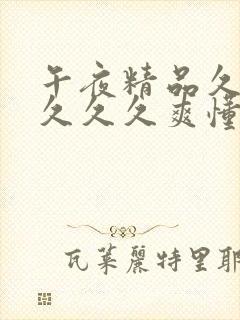 午夜精品久
久久久爽懂
瓦莱麗特里耶